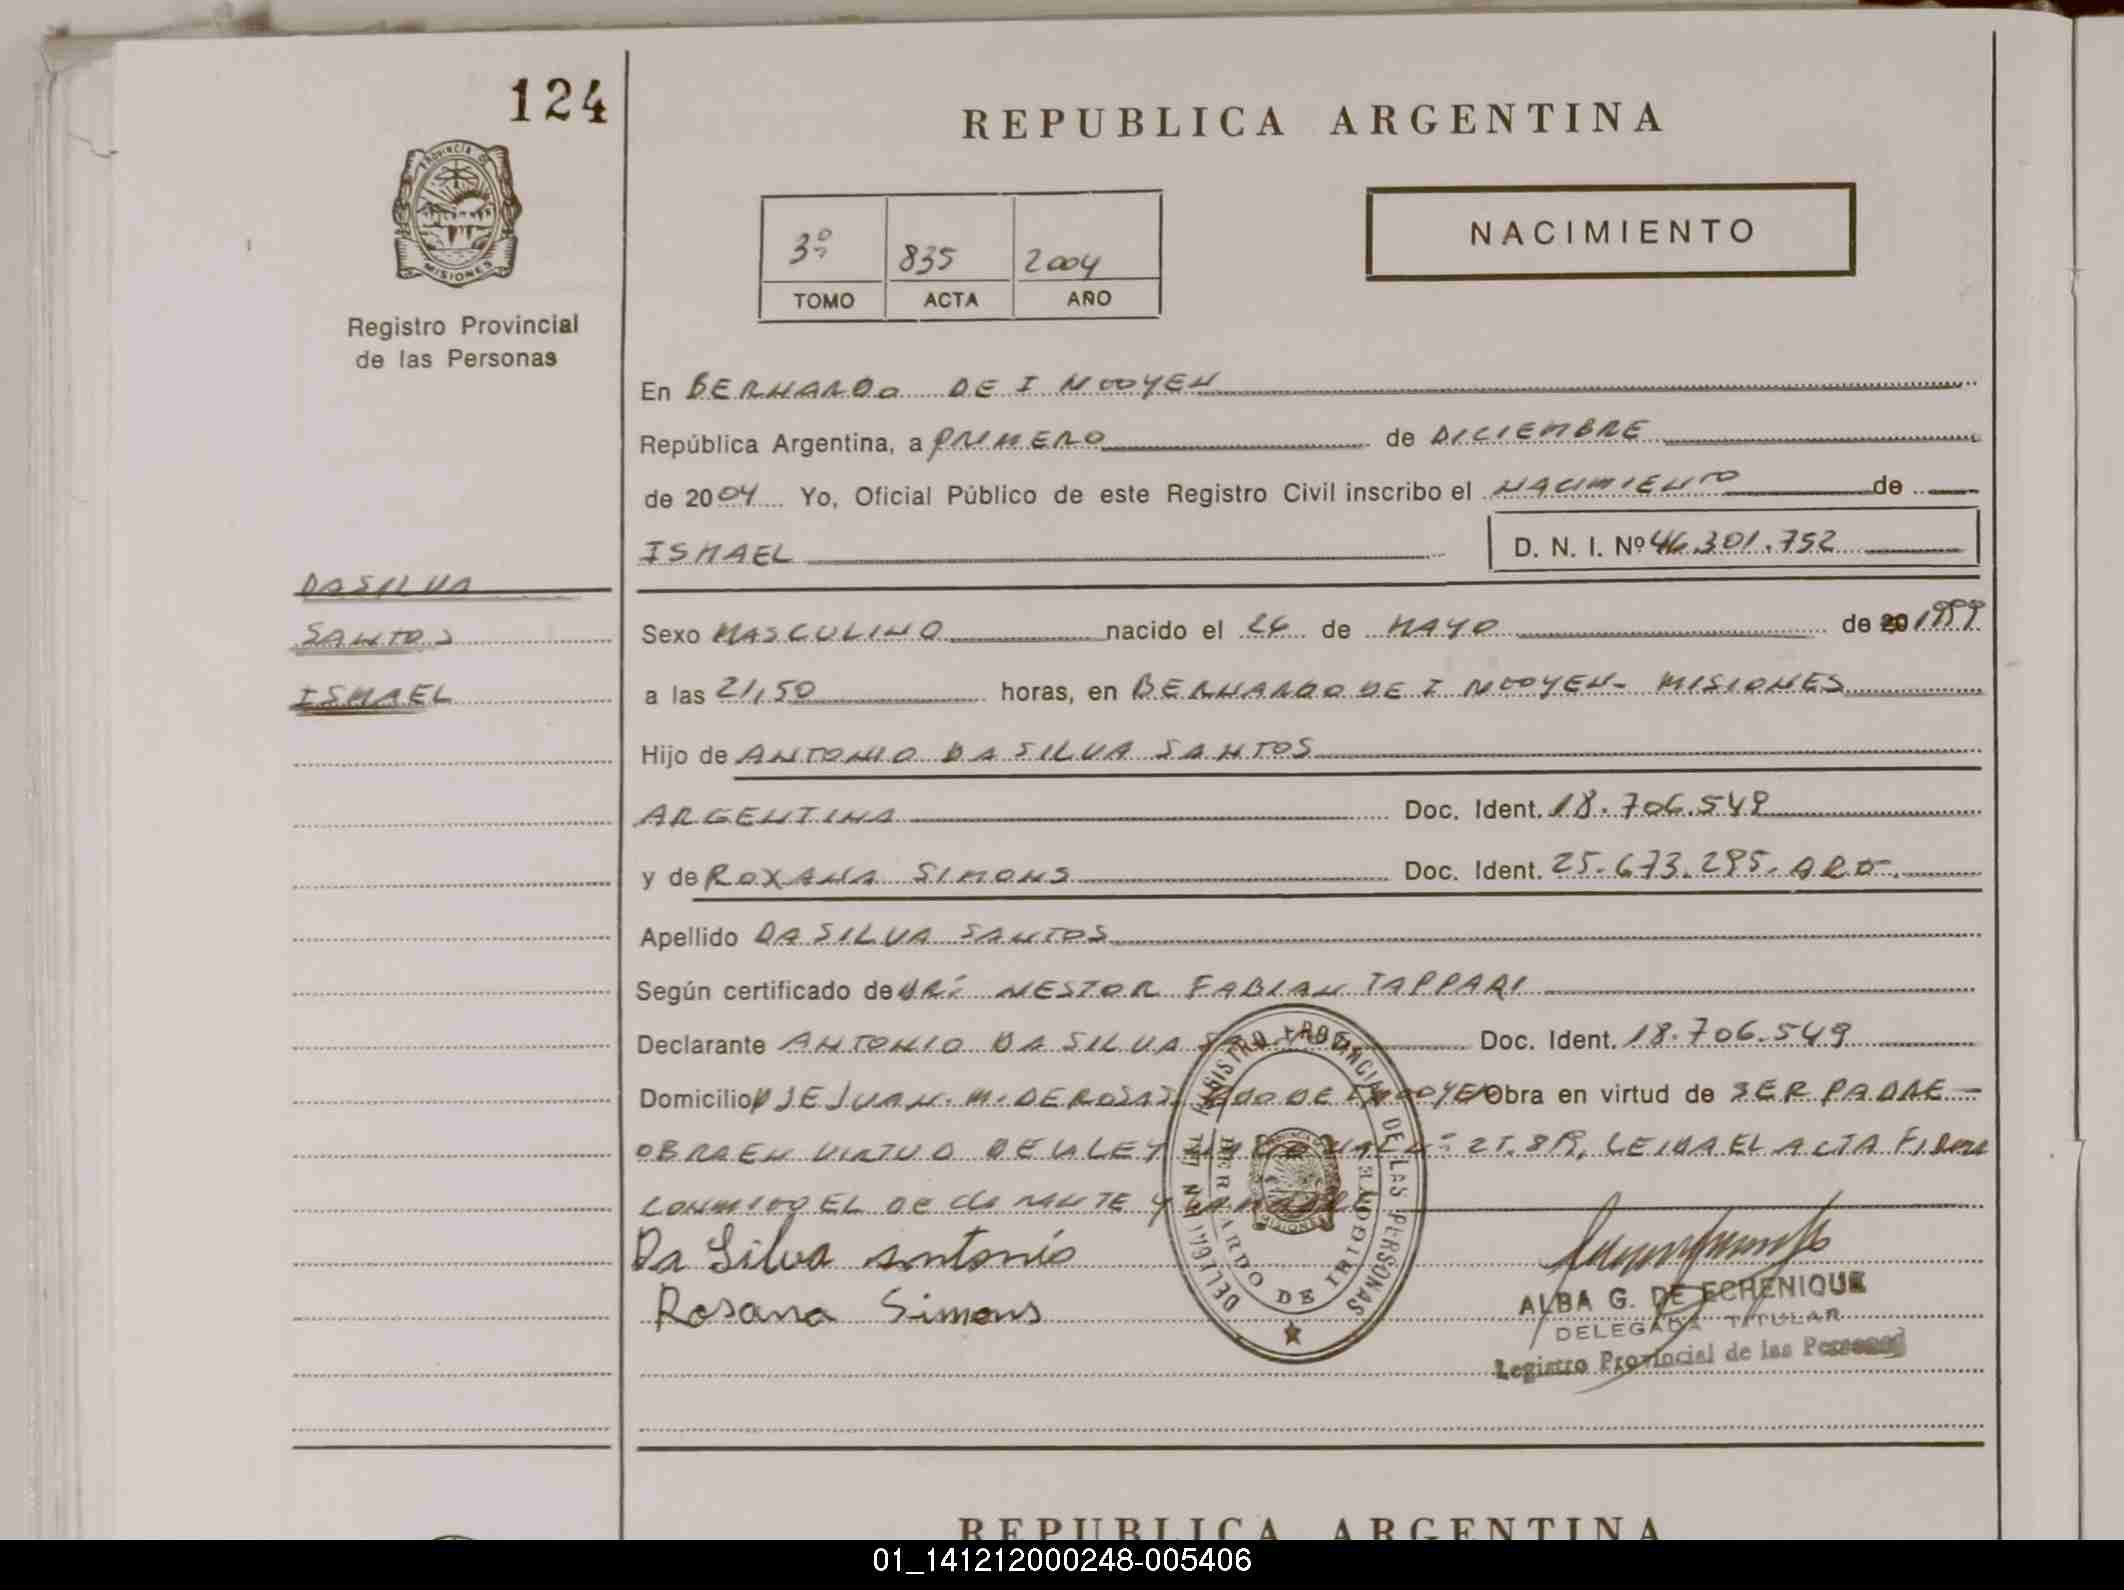 124
REPUBLICA ARGENTINA
PROVINCIA DE
MISIONES
Registro Provincial
de las Personas
3º 835 2004
TOMO ACTA AÑO
NACIMIENTO
En BERNARDO DE IRIGOYEN
República Argentina, a PRIMERO de DICIEMBRE
de 2004 Yo, Oficial Público de este Registro Civil inscribo el NACIMIENTO de
ISMAEL D. N. I. Nº 46.301.752
DA SILVA
SANTOS
ISMAEL
Sexo MASCULINO nacido el 26 de MAYO de 20 1999
a las 21,50 horas, en BERNARDO DE IRIGOYEN- MISIONES
Hijo de ANTONIO DA SILVA SANTOS
ARGENTINA Doc. Ident. 18.706.549
y de ROXANA SIMONS Doc. Ident. 25.673.295. ARG.
Apellido DA SILVA SANTOS
Según certificado de DR: NESTOR FABIAN TAPPARI
Declarante ANTONIO DA SILVA Doc. Ident. 18.706.549
Domicilio JUAN. M. DE ROSAS. BDO DE IRIGOYEN Obra en virtud de SER PADRE-
OBRA EN VIRTUD DE LA LEY LEIDA EL ACTA FIRMA
CONMIGO EL DECLARANTE Y LA MADRE
Da Silva antonio
Rosana Simons
REGISTRO PROVINCIAL DE LAS PERSONAS
BERNARDO DE IRIGOYEN
MISIONES
ALBA G. DE ECHENIQUE
DELEGADA TITULAR
Registro Provincial de las Personas
REPUBLICA ARGENTINA
01_141212000248-005406